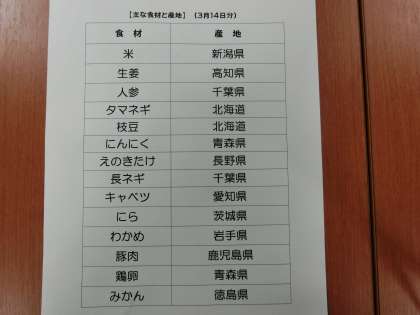 【主な食材と産地】 (3月14日分)
食 材 産 地
米 新潟県
生姜 高知県
人参 千葉県
タマネギ 北海道
枝豆 北海道
にんにく 青森県
えのきたけ 長野県
長ネギ 千葉県
キャベツ 愛知県
にら 茨城県
わかめ 岩手県
豚肉 鹿児島県
鶏卵 青森県
みかん 徳島県